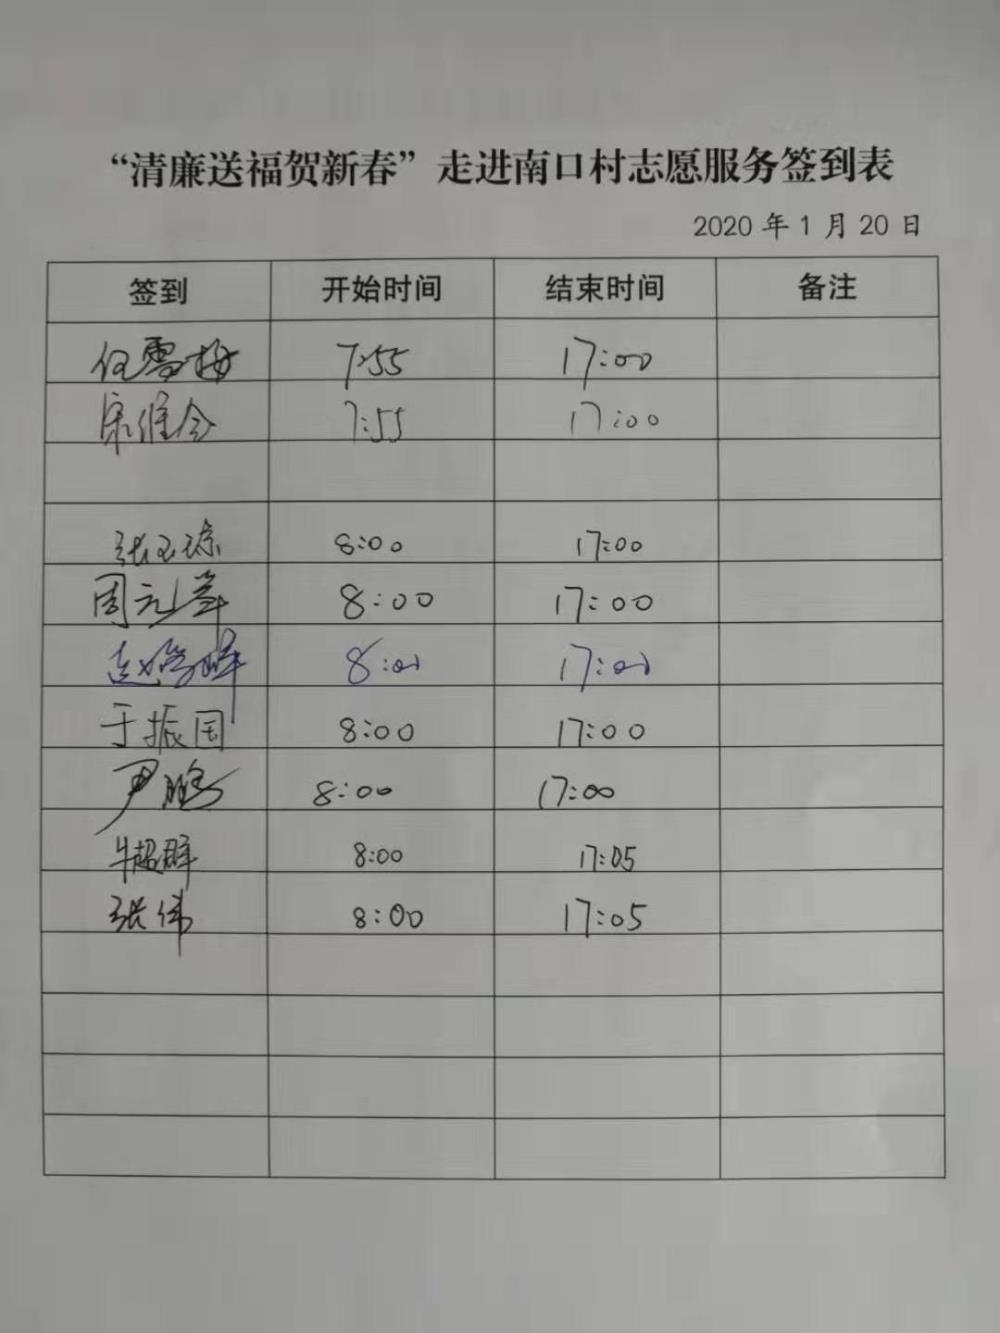 “清廉送福贺新春”走进南口村志愿服务签到表
2020 年 1 月 20 日
签到 开始时间 结束时间 备注
任雪梅 7:55 17:00
宋维令 7:55 17:00
张玉琼 8:00 17:00
周元 8:00 17:00
赵 8:00 17:00
于振国 8:00 17:00
尹鹏 8:00 17:00
牛超群 8:00 17:05
张伟 8:00 17:05